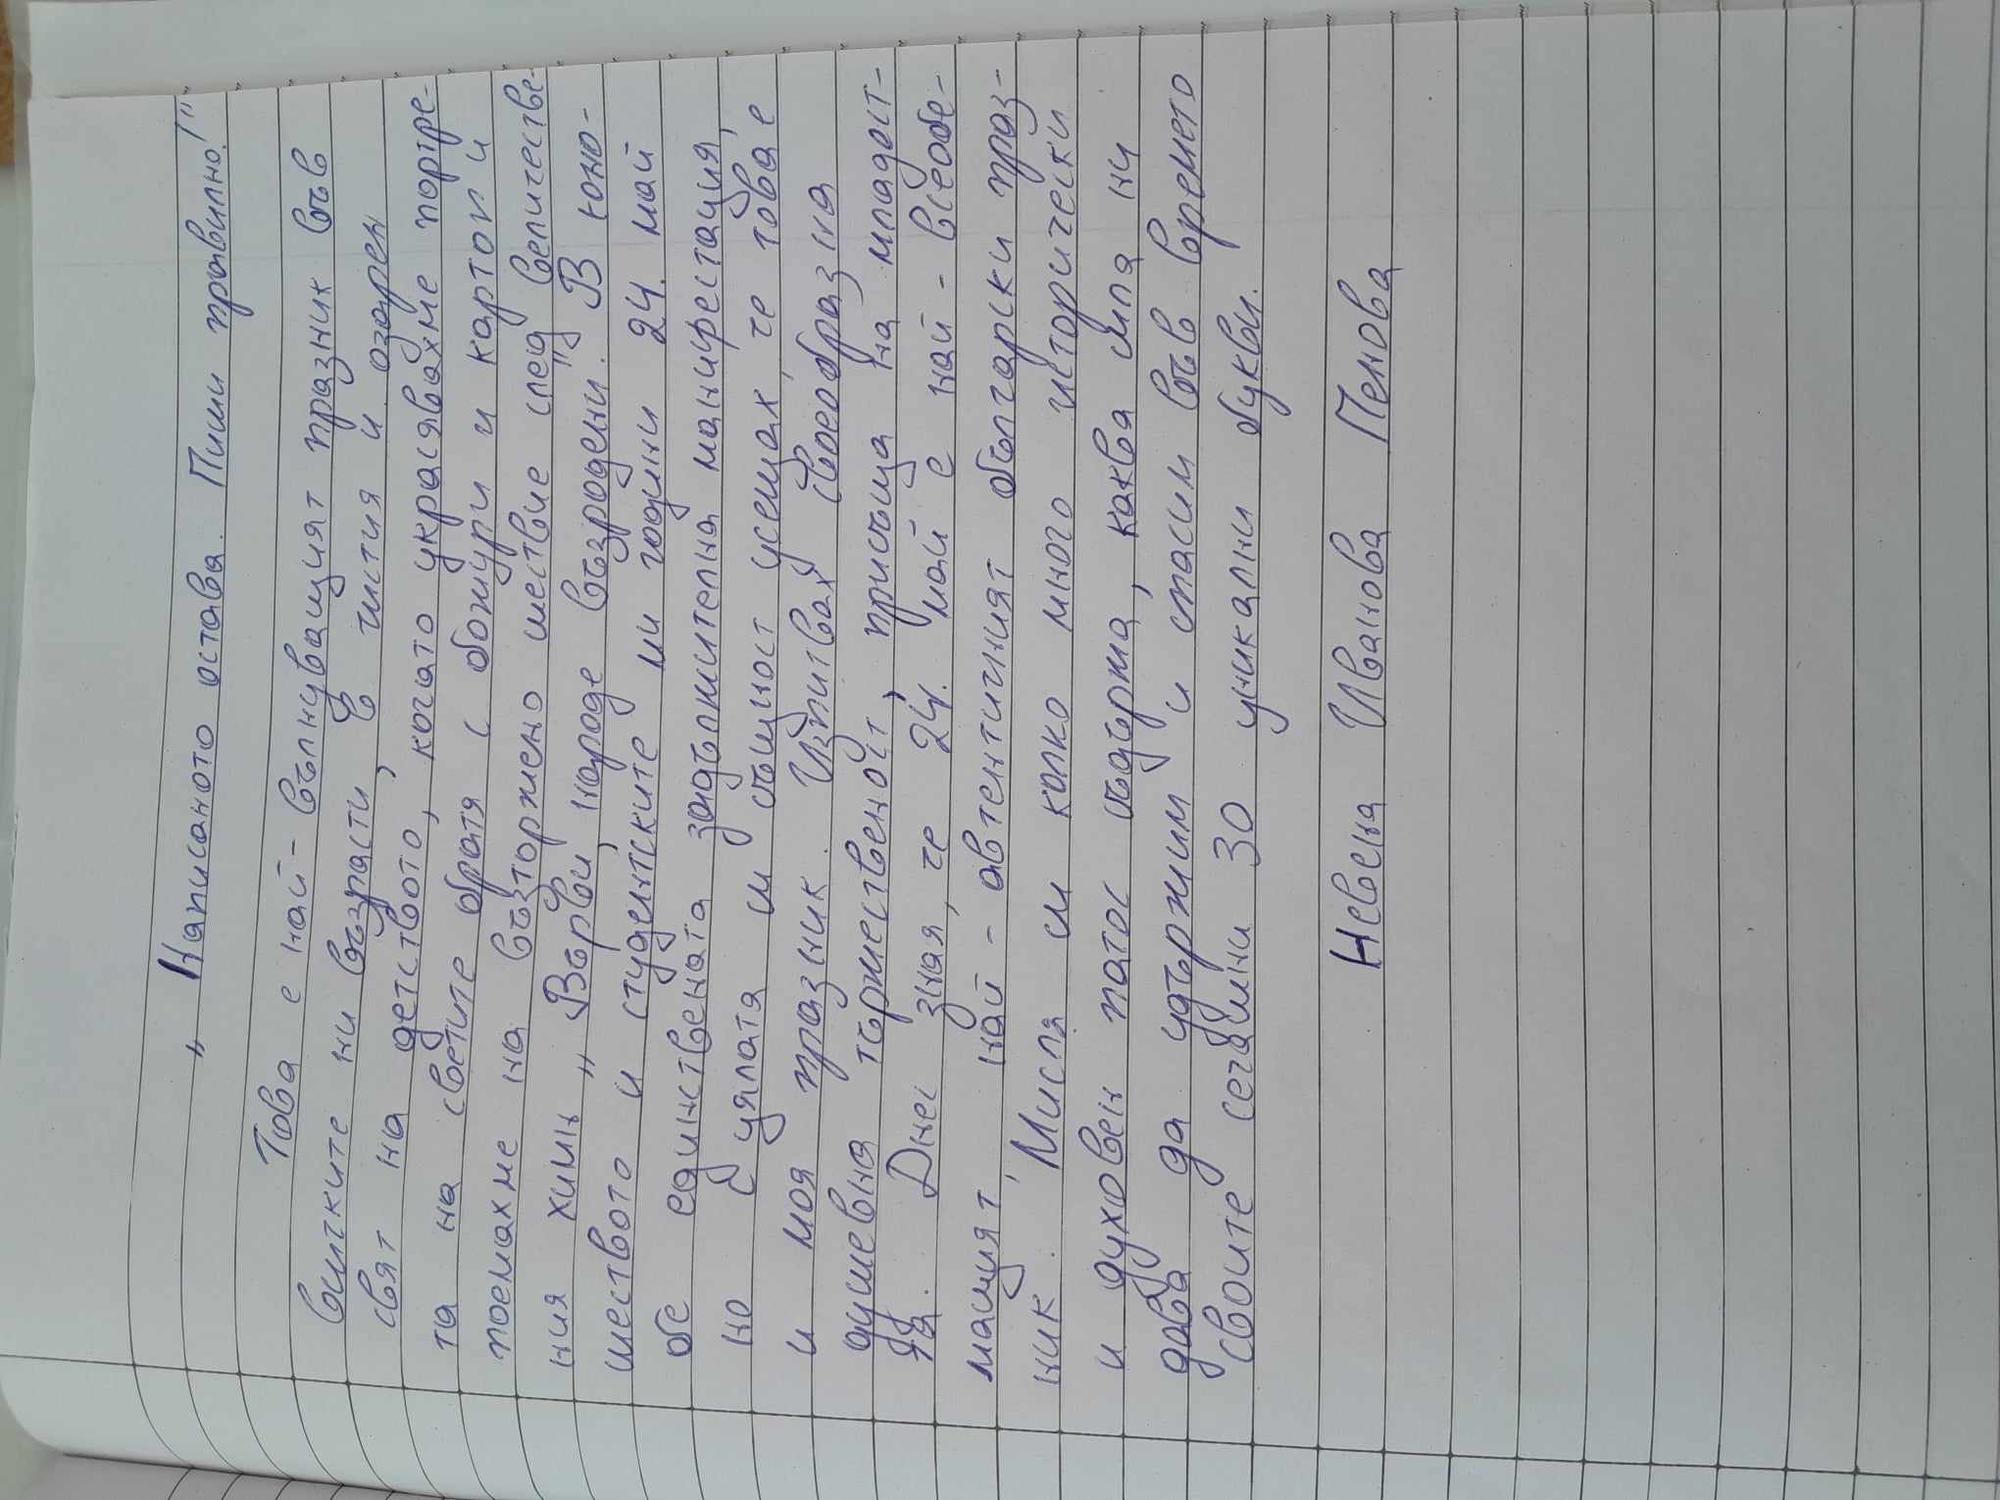 „Написаното остава. Пиши правилно!"
Това е най-вълнуващият празник във
всичките ни възрасти, в чистия и озарен
свят на детството, когато украсявахме портре-
та на светите братя с божури и картон и
поемахме на възторжено шествие след величестве-
ния химн „Върви, народе възродени". В юно-
шеството и студентските ми години 24. май
бе единствената задължителна манифестация,
но с цялата си същност усещах, че това е
и моя празник. Изпитвах своеобразна
душевна тържественост, присъща на младост-
та. Днес зная, че 24. май е най-всеобе-
мащият, най-автентичният български праз-
ник. Мисля си колко много исторически
и духовен патос съдържа, каква сила ни
дава да удържим и спасим във времето
своите сегашни 30 уникални букви.
Невена Иванова Пенова